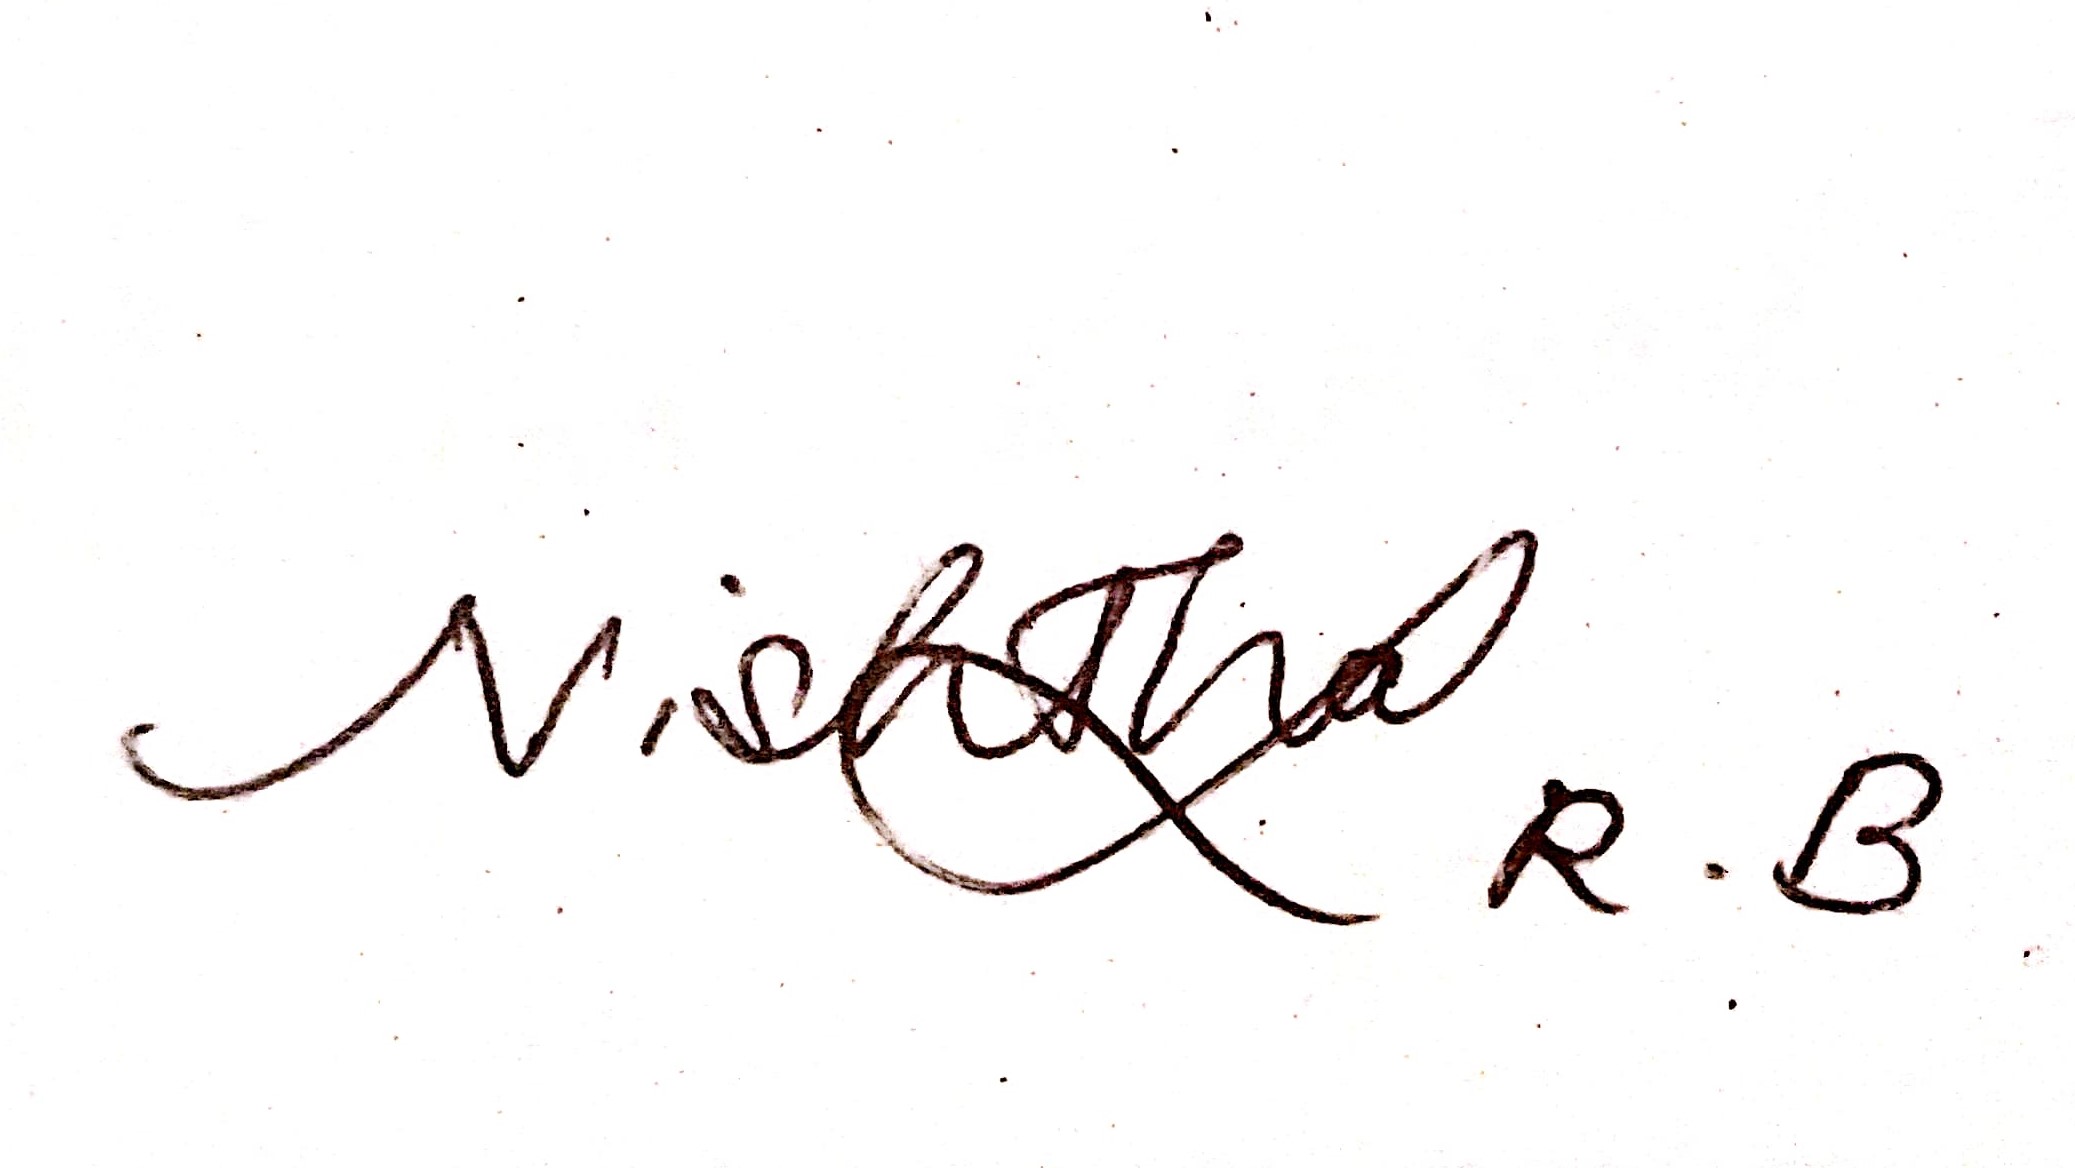 NishTha
R.B